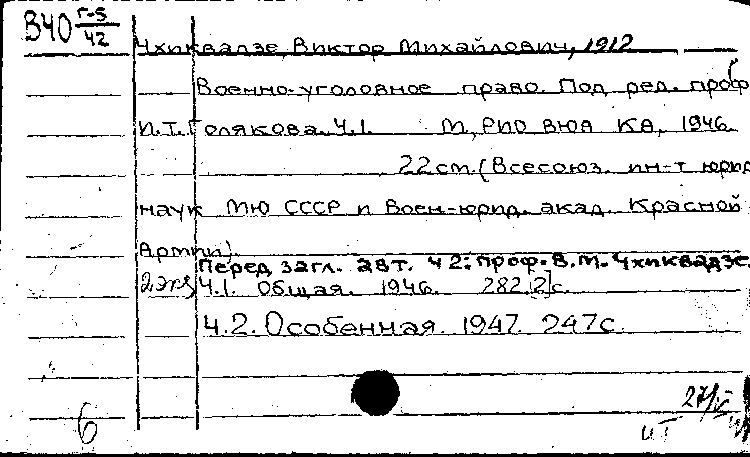 В40 Г-5/42
Чхиквадзе, Виктор Михайлович, 1912
Военно-уголовное право. Под ред. проф.
И.Т. Голякова. Ч.1. М, РИО ВЮА КА, 1946.
22 см. (Всесоюз. ин-т юрид
наук МЮ СССР и Воен-юрид. акад. Красной
Армии).
Перед загл. авт. ч 2: проф. В.М. Чхиквадзе.
2 экз Ч.1. Общая. 1946. 282,[2] с.
Ч.2. Особенная. 1947. 247 с.
27/V
6 ИТ